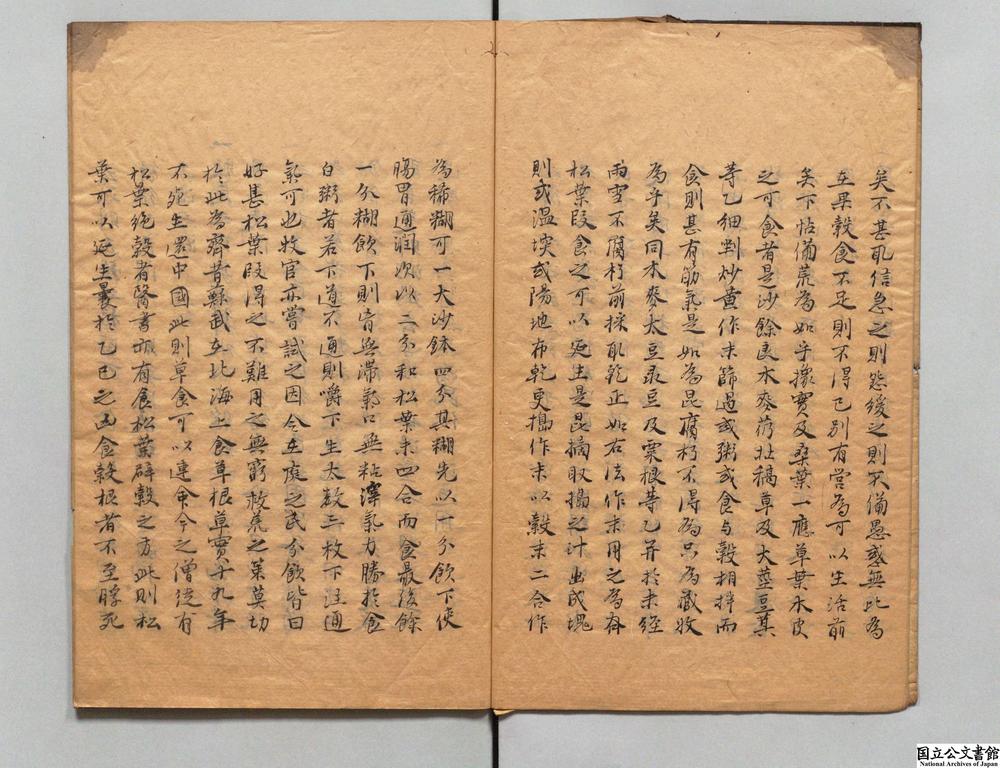 矣不甚飢信急之則怨緩之則不備愚惑無此為
在果穀食不足則不得已別有営為可以生活前
矣下帖備荒為如乎橡實及桑葉一應草葉木皮
之可食者是沙餘良木麥荞壮稿草及大豆萁
等乙細剉炒黄作末篩過或粥或食与穀相拌而
食則甚有筋氣是如為昆腐朽不得為只為藏收
為乎矣同木麥太豆彔豆及栗根等乙并於未経
雨雪不腐朽前採取乾正如右法作末用之為有
松葉段食之可以延生是昆摘取搗之汁出成塊
則或温堗或陽地布乾更搗作末以穀末二合作
為稀糊可一大沙鉢四分其糊先以一分飲下使
腸胃通潤次以二分和松葉末四合而食最後餘
一分糊飲下則皆無滯氣口無粘滓氣力勝於食
白粥者若下道不通則嚼下生太数三枚下注通
氣可也牧官亦嘗試之因令在庭之民分飲皆曰
好甚松葉段得之不難用之無窮救荒之策莫切
於此為齊昔蘇武在北海上食草根草實十九年
不死生還中國此則草食可以連命今之僧徒有
松葉絶穀者醫書亦有食松葉辟穀之方此則松
葉可以延生曼於乙巳之凶食穀根者不至浮死
国立公文書館
National Archives of Japan